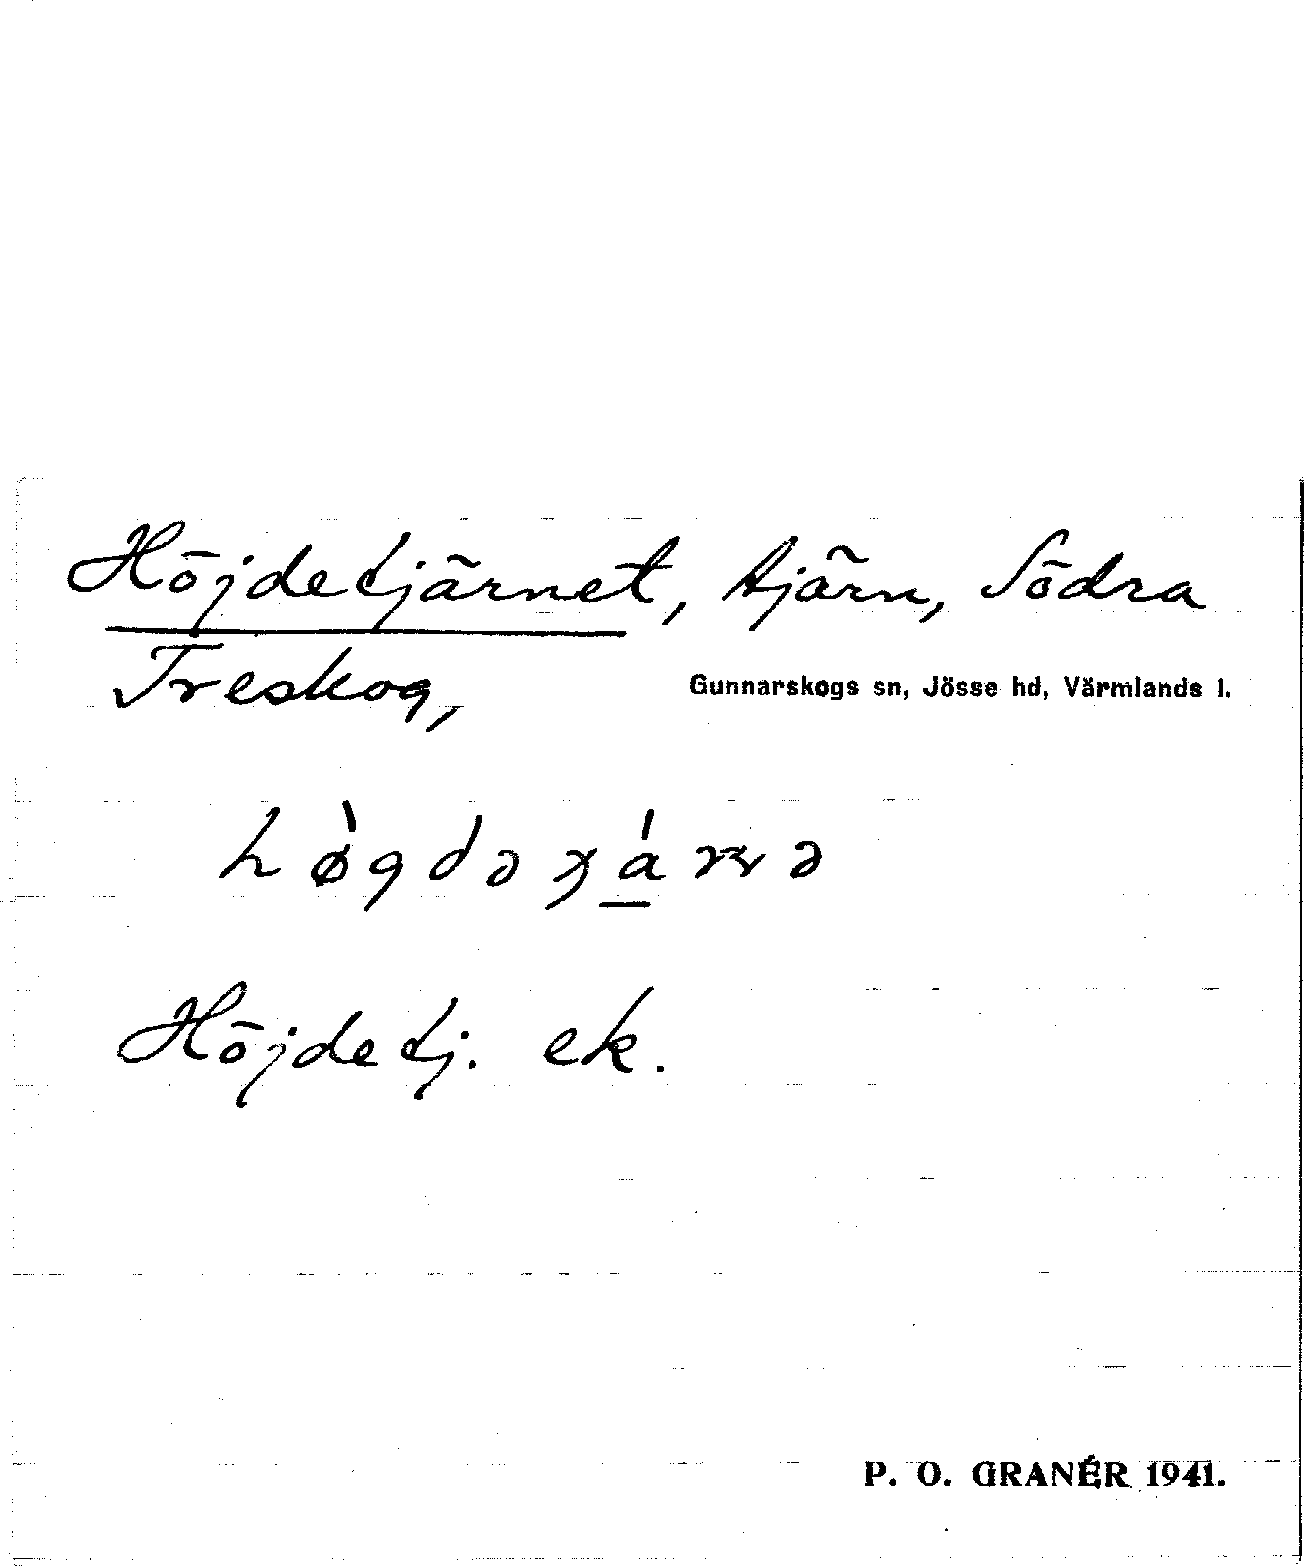 Höjdetjärnet, tjärn, Södra
Treskog, Gunnarskogs sn, Jösse hd, Värmlands l.
Höjdetj. ek.
P. O. GRANÉR 1941.